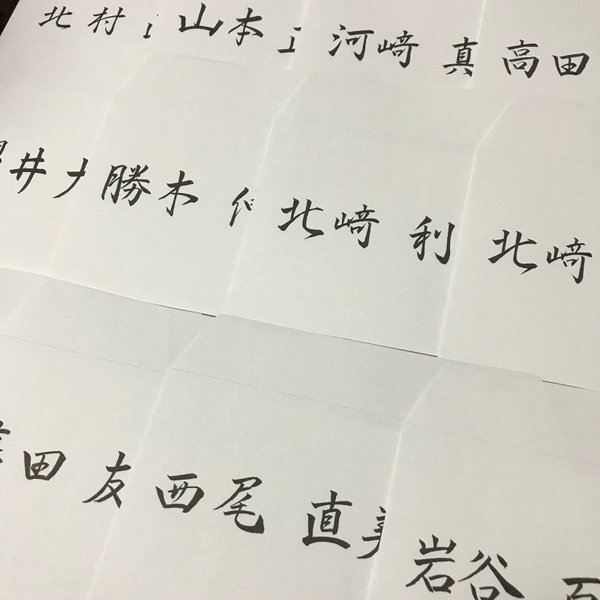 北村
山本
河﨑 真
高田
井
勝木
北﨑 利
北﨑
田 友
西尾 直美
岩谷